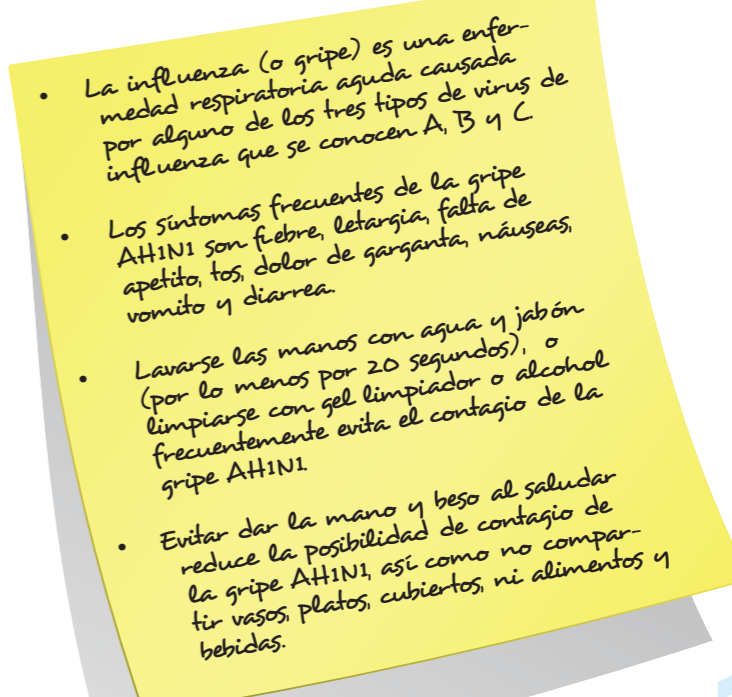 • La influenza (o gripe) es una enfer-
medad respiratoria aguda causada
por alguno de los tres tipos de virus de
influenza que se conocen A, B y C.
• Los síntomas frecuentes de la gripe
AH1N1 son fiebre, letargia, falta de
apetito, tos, dolor de garganta, náuseas,
vomito y diarrea.
• Lavarse las manos con agua y jabón
(por lo menos por 20 segundos), o
limpiarse con gel limpiador o alcohol
frecuentemente evita el contagio de la
gripe AH1N1.
• Evitar dar la mano y beso al saludar
reduce la posibilidad de contagio de
la gripe AH1N1, así como no compar-
tir vasos, platos, cubiertos, ni alimentos y
bebidas.